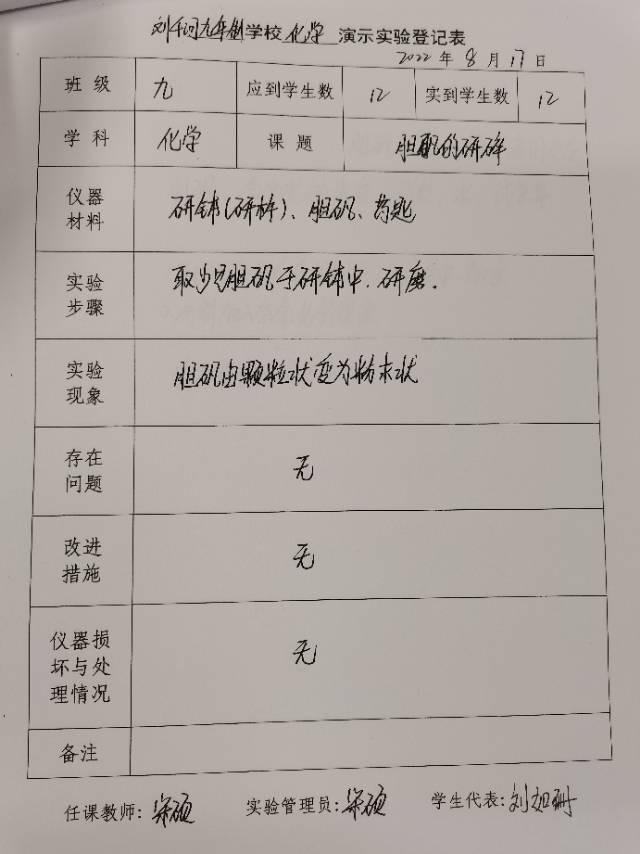 刘千河九年制学校 化学 演示实验登记表
2022 年 8 月 17 日
班 级 九 应到学生数 12 实到学生数 12
学 科 化学 课 题 胆矾的研碎
仪器
材料
研钵(研杵)、胆矾、药匙
实验
步骤
取少量胆矾于研钵中,研磨.
实验
现象
胆矾由颗粒状变为粉末状
存在
问题
无
改进
措施
无
仪器损
坏与处
理情况
无
备注
任课教师: 实验管理员: 学生代表:刘如珊